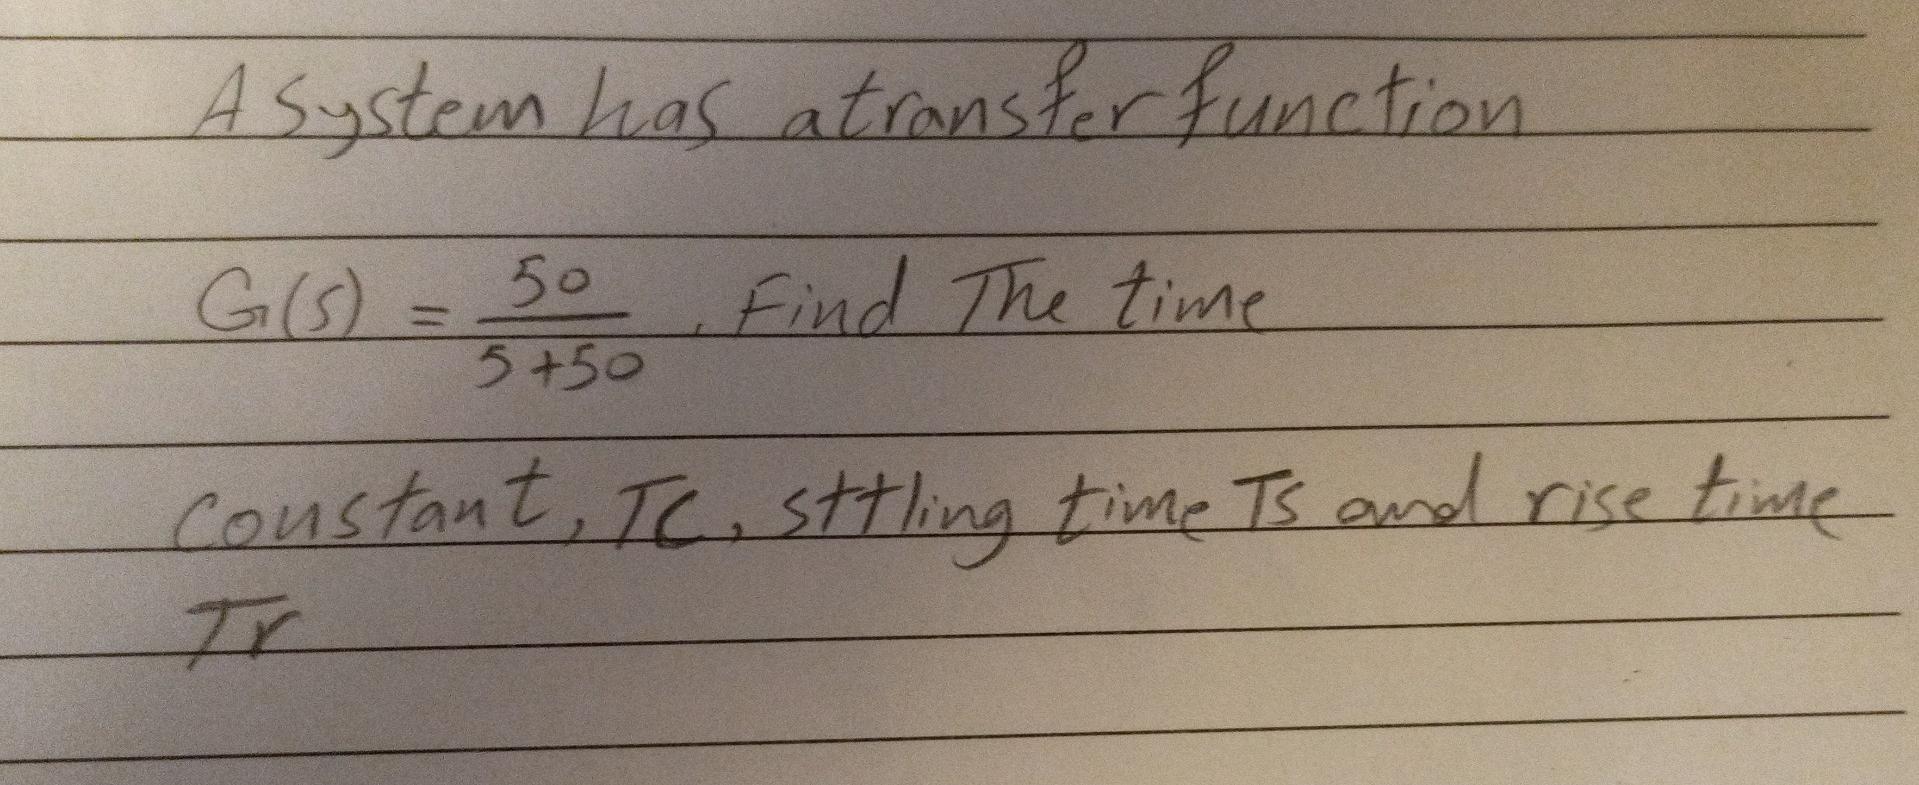 A System has a transfer function
G(s) = 50 / 5+50 , Find The time
constant, Tc, sttling time Ts and rise time
Tr